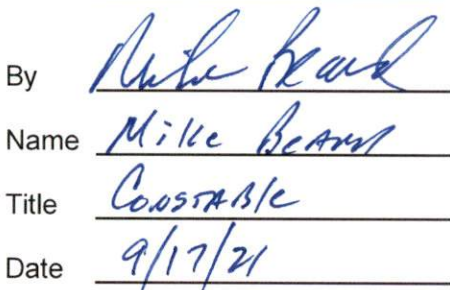 By Mike Beard
Name Mike Beard
Title Constable
Date 9/17/21